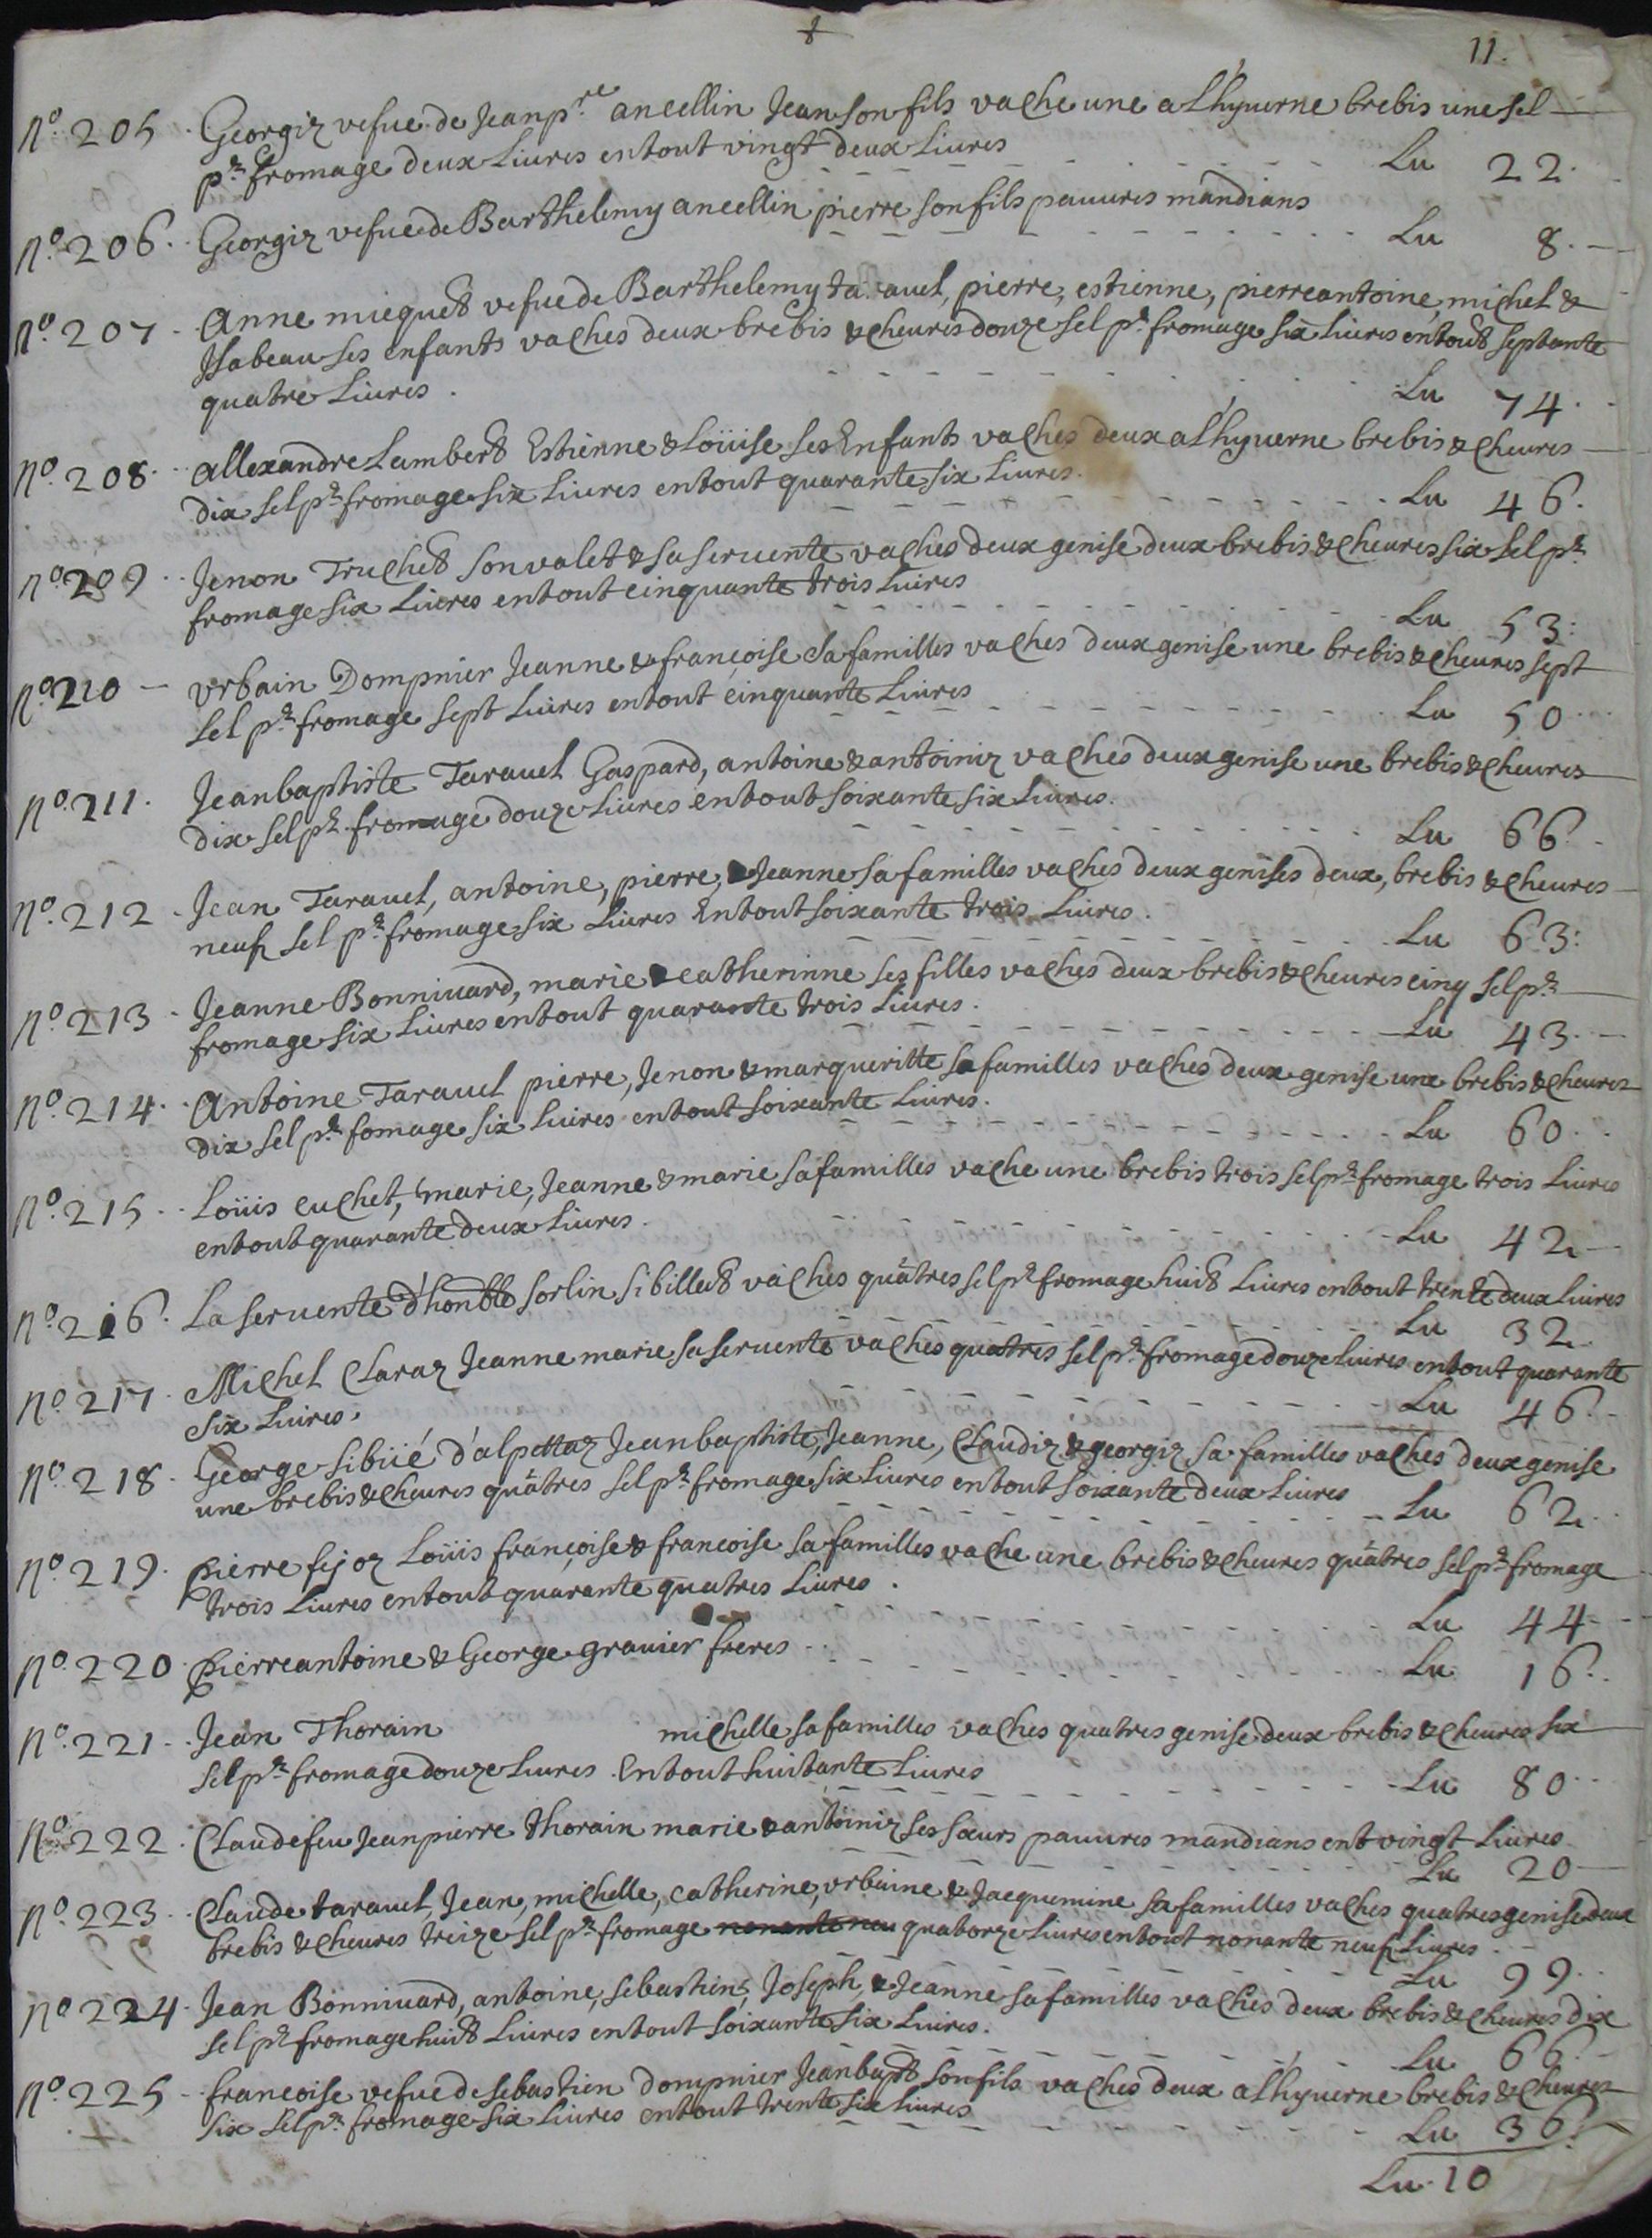 11.
No. 205 Georgiz vefue de Jean prre ancellin Jean son fils vache une a l'hyuerne brebis une sel
pr fromage deux Liures en tout vingt deux Liures Lu 22.
No. 206. Georgiz vefue de Barthelemy ancellin pierre son fils pauures mandians
Lu 8.
No. 207 Anne miequet vefue de Barthelemy tarauel, pierre, estienne, pierre antoine, michel &
Isabeau ses enfants vaches deux brebis & cheures douze sel pr fromage six liures en tout septante
quatre Liures. Lu 74.
No. 208. allexandre Lambert Estienne & Loüise ses Enfants vaches deux a l'hyuerne brebis & cheures
dix sel pr fromage six Liures en tout quarante six Liures. Lu 46.
No. 209 Jenon Truchet son valet & sa seruente vaches deux genise deux brebis & cheures six sel pr
fromage six Liures en tout cinquante trois Liures Lu 53:
No. 210 vrbain Dompnier Jeanne & françoise sa familles vaches deux genise une brebis & cheures sept
sel pr fromage sept Liures en tout cinquante Liures Lu 50
No. 211. Jean baptiste Tarauel Gaspard, antoine & antoiniz vaches deux genise une brebis & cheures
dix sel pr fromage douze Liures en tout soixante six Liures. Lu 66.
No. 212 Jean Tarauel, antoine, pierre, & Jeanne sa familles vaches deux genises deux, brebis & cheures
neuf sel pr fromage six Liures En tout soixante trois Liures. Lu 63:
No. 213 Jeanne Bonniuard, marie & catherinne ses filles vaches deux brebis & cheures cinq sel pr
fromage six Liures en tout quarante trois Liures. Lu 43.
No. 214. Antoine Tarauel pierre, Jenon & margueritte sa familles vaches deux genise une brebis & cheures
dix sel pr fomage six Liures en tout soixante Liures. Lu 60.
No. 215 Loüis cuchet, marie, Jeanne & marie sa familles vache une brebis trois sel pr fromage trois Liures
en tout quarante deux Liures. Lu 42
No. 216. La seruente d'honble sorlin sibillet vaches quâtres sel pr fromage huit Liures en tout trente deux Liures
Lu 32.
No. 217. Michel Claraz Jeanne marie sa seruente vaches quatres sel pr fromage douze Liures en tout quarante
six Liures. Lu 46.
No. 218 George sibüé d'alpettaz Jean baptiste, Jeanne, Claudiz & georgiz sa familles vaches deux genise
une brebis & cheures quâtres sel pr fromage six Liures en tout soixante deux Liures Lu 62.
No. 219. pierre fejoz Loüis françoise & francoise sa familles vache une brebis & cheures quâtres sel pr fromage
trois Liures en tout quarante quatres Liures. Lu 44
No. 220 pierre antoine & George grauier freres Lu 16.
No. 221 Jean Thorain michelle sa familles vaches quatres genise deux brebis & cheures six
sel pr fromage douze Liures En tout huitante Liures Lu 80
No. 222. Claude feu Jean pierre thorain marie & antoiniz ses sœurs pauures mandians ent vingt Liures
Lu 20
No. 223 Claude tarauel, Jean, michelle, catherine, vrbaine & Jacquemine sa familles vaches quatres genise deux
brebis & cheures treize sel pr fromage nonante neu quatorze Liures en tout nonante neuf Liures
Lu 99.
No. 224. Jean Bonniuard, antoine, sebastien, Joseph, & Jeanne sa familles vaches deux brebis & cheures dix
sel pr fromage huit Liures en tout soixante six Liures. Lu 66.
No. 225 francoise vefue de sebastien dompnier Jean bapt son fils vaches deux a l'hyuerne brebis & cheures
six sel pr fromage six Liures en tout trente six Liures Lu 36.
Lu 10